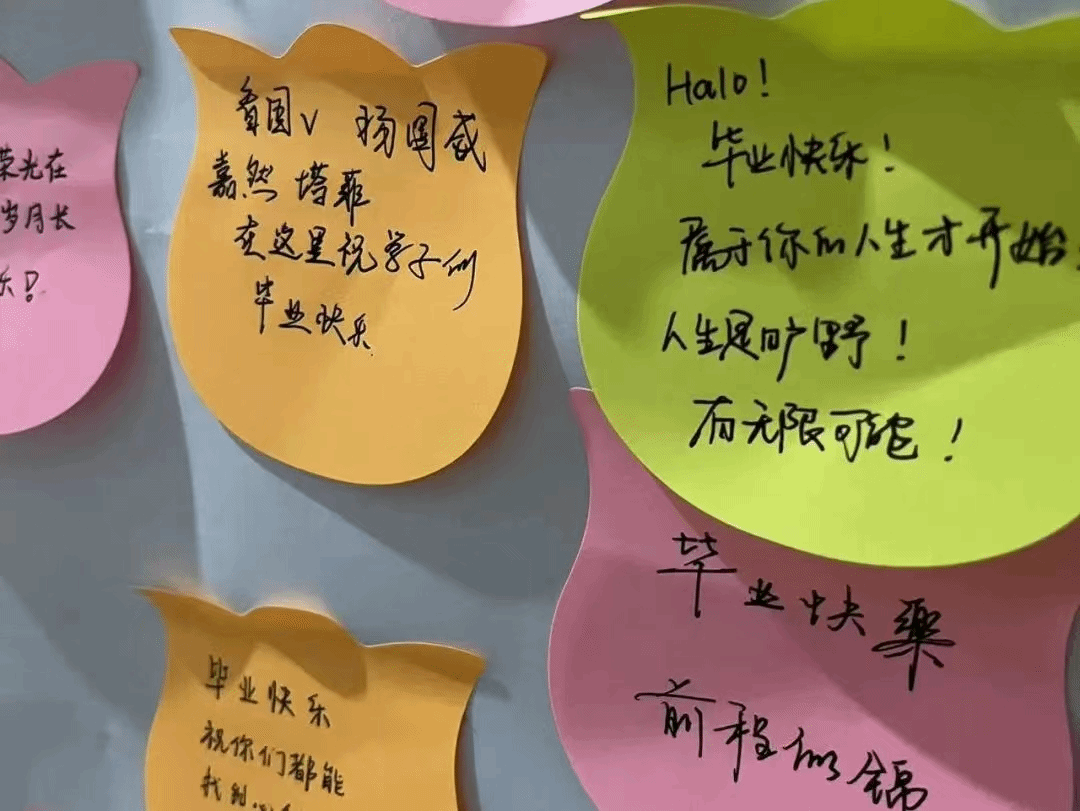 荣光在
岁月长
乐!
看国v 杨国威
嘉然 塔菲
在这里祝学子们
毕业快乐
Halo!
毕业快乐!
属于你的人生才开始!
人生是旷野!
有无限可能!
毕业快乐
祝你们都能
找到
毕业快樂
前程似锦